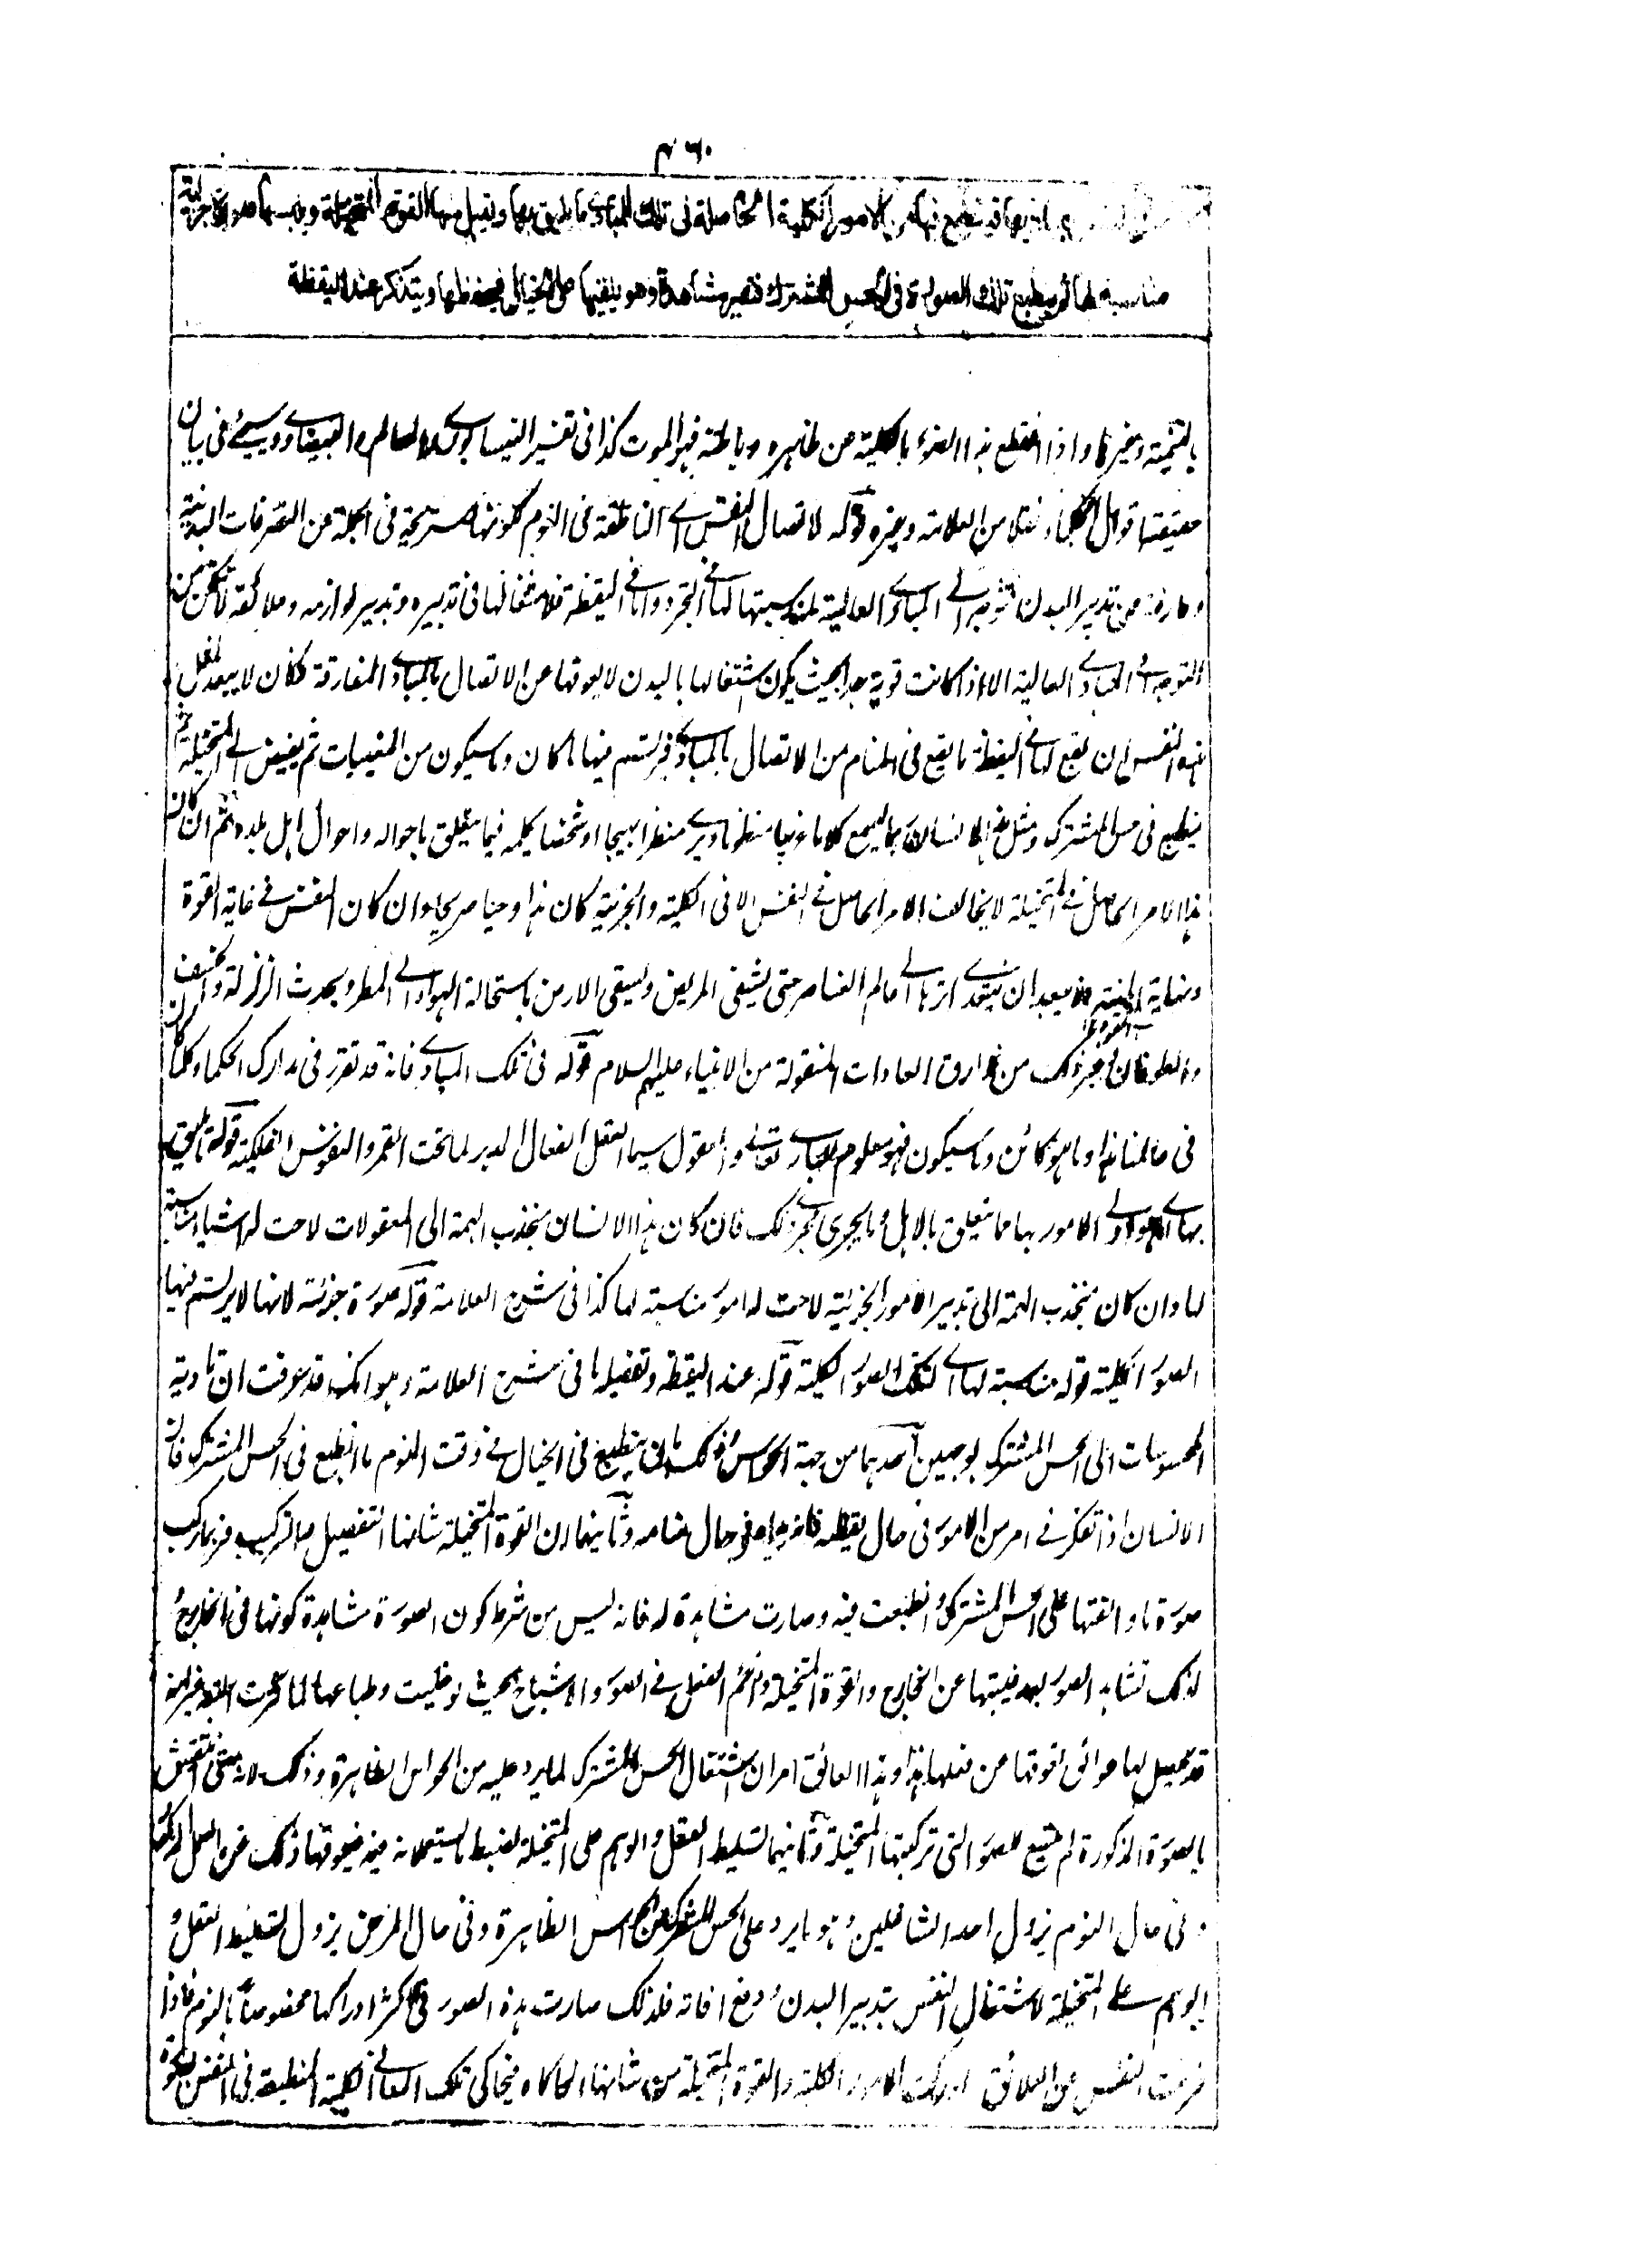 ٤٦٠
فينطبع فيها من الامور الكلية الحاصلة في تلك المبادي ما يليق بها ويقبل منها القوة المتخيلة ويلبسها صورة جزئية
مناسبة لها ثم ينطبع تلك الصورة في الحس المشترك فتصير مشاهدة وهو يلقيها على الخيال فيحفظها ويتذكر عند اليقظة
واذا انقطع هذا الضوء بالكلية عن ظاهره وباطنه فهو الموت كذا في تفسير النيسابوري والمعالم والبيضاوي وسيجئ في بيان
حقيقتها قول الحكماء نقلا من العلامة وغيره قوله لاتصال النفس اي الناطقة في النوم لكونها مستريحة في الجملة عن التصرفات البدنية
وفارغة عن تدبير البدن فتوجه الى المبادي العالية لمناسبتها لها في التجرد واما في اليقظة فلاشتغالها في تدبيره وتدبير لوازمه وملائمته لا تتمكن من
التوجه الى المبادي العالية الا اذا كانت قوية جدا بحيث يكون اشتغالها بالبدن لا يعوقها عن الاتصال بالمبادي المفارقة فكان لا يبعد لمثل
هذه النفس ان يقع لها في اليقظة ما يقع في المنام من الاتصال بالمبادي فيرتسم فيها ما كان وما سيكون من المغيبات ثم يفيض الى المتخيلة ثم
ينطبع في حس المشترك ومثل هذا الانسان ربما يسمع كلاما منظوما ويرى منظرا بهيجا او شخصا يكلمه فيما يتعلق باحواله واحوال اهل بلده ثم ان كان
هذا الامر الحاصل في المتخيلة لا يخالف الامر الحاصل في النفس الا في الكلية والجزئية كان هذا وحيا صريحا وان كان النفس في غاية القوة
ونهاية فلا يبعد ان يتعدى اثرها الى عالم العناصر حتى يشفى المريض ويسقى الارض باستحالة الهواء الى المطر ويحدث الزلزلة والخسف
والطوفان وغير ذلك من خوارق العادات المنقولة من الانبياء عليهم السلام قوله في تلك المبادي فانه قد تقرر في مدارك الحكماء كلما كان
في عالمنا هذا وما هو كائن وما سيكون فهو معلوم للباري تعالى والعقول سيما العقل الفعال المدبر لما تحت القمر والنفوس الفلكية قوله ما يليق
بها اي الامور بها مما يتعلق بالاهل وما يجري مجرى ذلك فان كان هذا الانسان منجذب الهمة الى المعقولات لاحت له اشياء مناسبة
لها وان كان منجذب الهمة الى تدبير الامور الجزئية لاحت له امور مناسبة لها كذا في شرح العلامة قوله صورة جزئية لانها لا يرتسم فيها
الصور الكلية قوله مناسبة لها اي لتلك الصور الكلية قوله عند اليقظة وتفصيله ما في شرح العلامة وهو انك قد عرفت ان تادية
المحسوسات الى الحس المشترك بوجهين احدهما من جهة الحواس وذلك بان ينطبع في الخيال في وقت النوم ما انطبع في الحس المشترك فان
الانسان اذا تفكر في امر من الامور في حال يقظته فانه يراه في حال منامه وثانيهما ان القوة المتخيلة شانها التفصيل والتركيب فربما ركب
صورة ما والقتها على الحس المشترك وانطبعت فيه وصارت مشاهدة له فانه ليس من شرط كون الصورة مشاهدة كونها في الخارج و
لذلك تشاهد الصور بعد غيبتها عن الخارج والقوة المتخيلة دائم الفعل في الصور والاشباح بحيث لو خليت وطباعها لما فترت البتة غير انه
قد يحصل لها عوائق تعوقها عن فعلها هذا وهذا العائق امران اشتغال الحس المشترك لما يرد عليه من الحواس الظاهرة وذلك لانه متى انتقش
بالصورة المذكورة لم يتسع للصور التي تركبها المتخيلة وثانيهما تسليط العقل والوهم على المتخيلة لضبط ما يستعملانه فيه فيعوقها ذلك عن العمل المذكور
وفي حال النوم يزول احد الشاغلين وهو ما يرد على الحس المشترك من الحواس الظاهرة وفي حال المرض يزول تسليط العقل و
الوهم على المتخيلة لاشتغال النفس بتدبير البدن ودفع افاته فلذلك صارت هذه الصور في اكثر ادراكها مخصوصا بالنوم فاذا
فرغت النفس عن العلائق ادركت الامور الكلية والقوة المتخيلة من شانها المحاكاة فيحاكي تلك المعاني الكلية المنطبعة في النفس بصورة